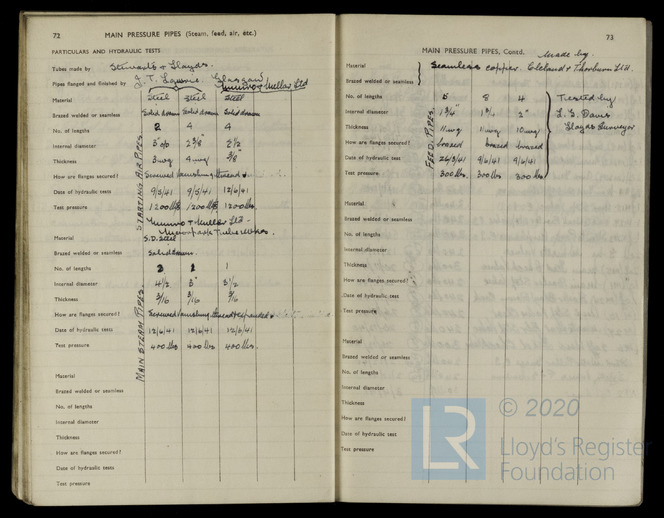 72 MAIN PRESSURE PIPES (Steam, feed, air, etc.)
PARTICULARS AND HYDRAULIC TESTS
Tubes made by Stewarts & Lloyds.
Pipes flanged and finished by Glasgow
Munro & Miller Ltd
STARTING AIR PIPES
Material Steel Steel Steel
Brazed welded or seamless Solid drawn Solid drawn Solid drawn
No. of lengths 2 4 4
Internal diameter 3" o/b 2 3/8" 2 1/2
Thickness 3 wg 4 wg 3/8"
How are flanges secured? Screwed vanishing thread &
Date of hydraulic tests 9/5/41 9/5/41 12/6/41
Test pressure 1200 lbs 1200 lbs 1200 lbs.
Munro & Miller Ltd
MAIN STEAM PIPES
Material S.D. Steel
Brazed welded or seamless Solid drawn.
No. of lengths 2 2 1
Internal diameter 4 1/2 3" 3 1/2
Thickness 3/16 3/16 3/16
How are flanges secured? Screwed vanishing thread & expanded
Date of hydraulic tests 12/6/41 12/6/41 12/6/41
Test pressure 400 lbs 400 lbs 400 lbs.
Material
Brazed welded or seamless
No. of lengths
Internal diameter
Thickness
How are flanges secured?
Date of hydraulic tests
Test pressure
73
MAIN PRESSURE PIPES, Contd. Made by
Material Seamless copper. Cleland & Thorburn Ltd.
Brazed welded or seamless
FEED PIPES
No. of lengths 5 8 4 Tested by
Internal diameter 1 3/4" 1 3/4 2" L.S. Davis
Thickness 11 wg 11 wg 10 wg Lloyds Surveyor
How are flanges secured? brazed brazed brazed
Date of hydraulic test 26/3/41 9/6/41 9/6/41
Test pressure 300 lbs. 300 lbs 300 lbs
Material
Brazed welded or seamless
No. of lengths
Internal diameter
Thickness
How are flanges secured?
Date of hydraulic test
Test pressure
Material
Brazed welded or seamless
No. of lengths
Internal diameter
Thickness
How are flanges secured?
Date of hydraulic test
Test pressure
LR © 2020
Lloyd's Register
Foundation